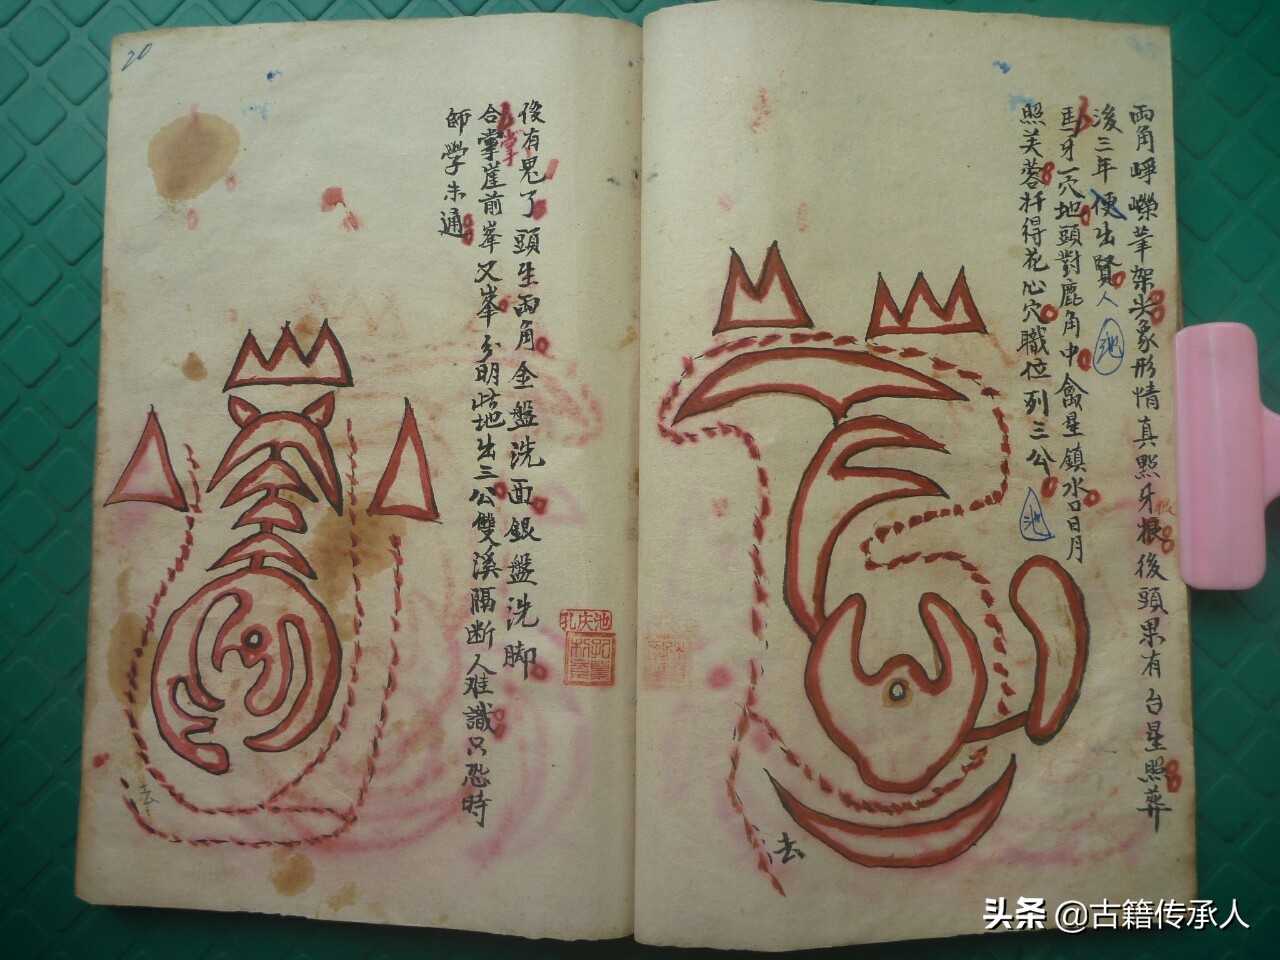 両角崢嶸筆架尖象形情真點牙根後頭果有台星照葬
後三年便出賢人
池
牙一穴地頭對鹿角中禽星鎮水口日月
照芙蓉杆得花心穴職位列三公
池
根
去
後有鬼了頭生両角金盤洗面銀盤洗脚
合掌崖前峯又峯分明此地出三公雙溪隔断人难識只恐時
師學未通
掌
去
20
池庆
头条 @古籍传承人